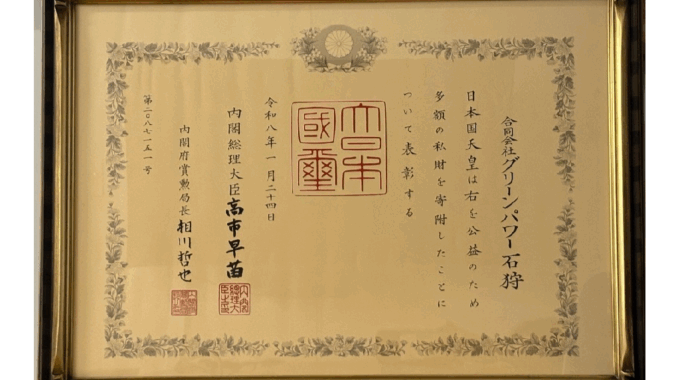 合同会社グリーンパワー石狩
日本国天皇は右を公益のため
多額の私財を寄附したことに
ついて表彰する
大日本
國璽
令和八年一月二十四日
内閣総理大臣 高市早苗
内閣府賞勲局長 相川哲也
第二〇八七一五一号